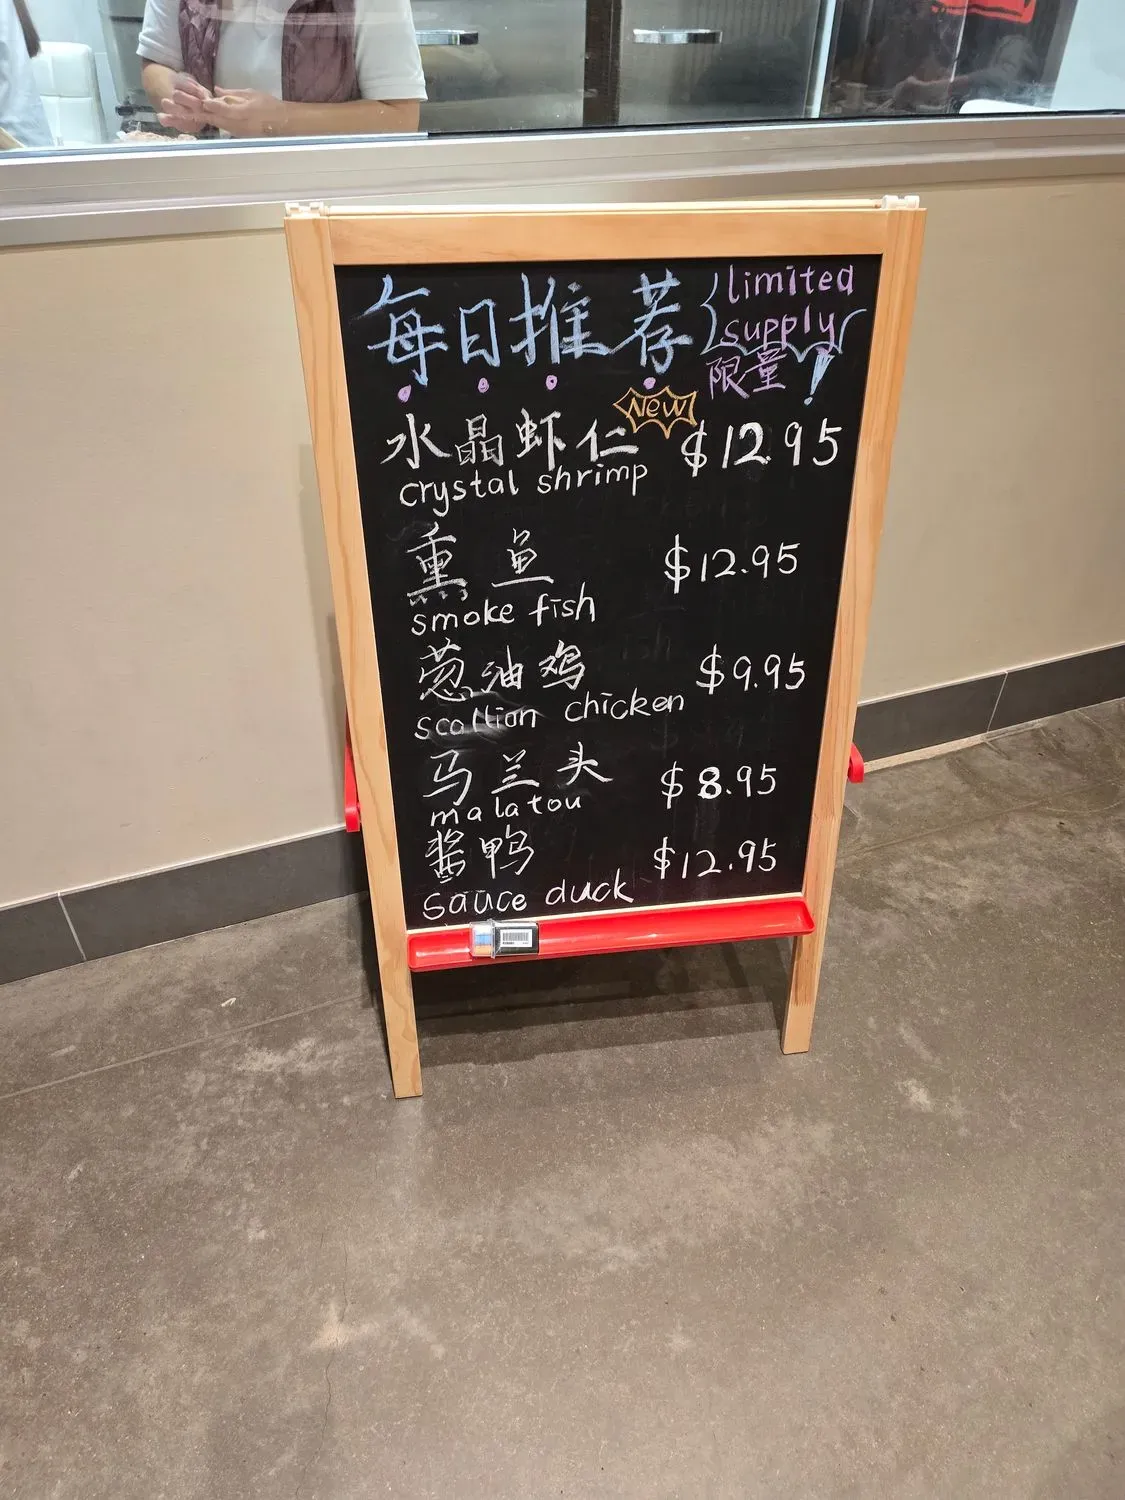 每日推荐
limited
supply
限量!
New
水晶虾仁 $12.95
crystal shrimp
熏鱼 $12.95
smoke fish
葱油鸡 $9.95
scallion chicken
马兰头 $8.95
malatou
酱鸭 $12.95
sauce duck